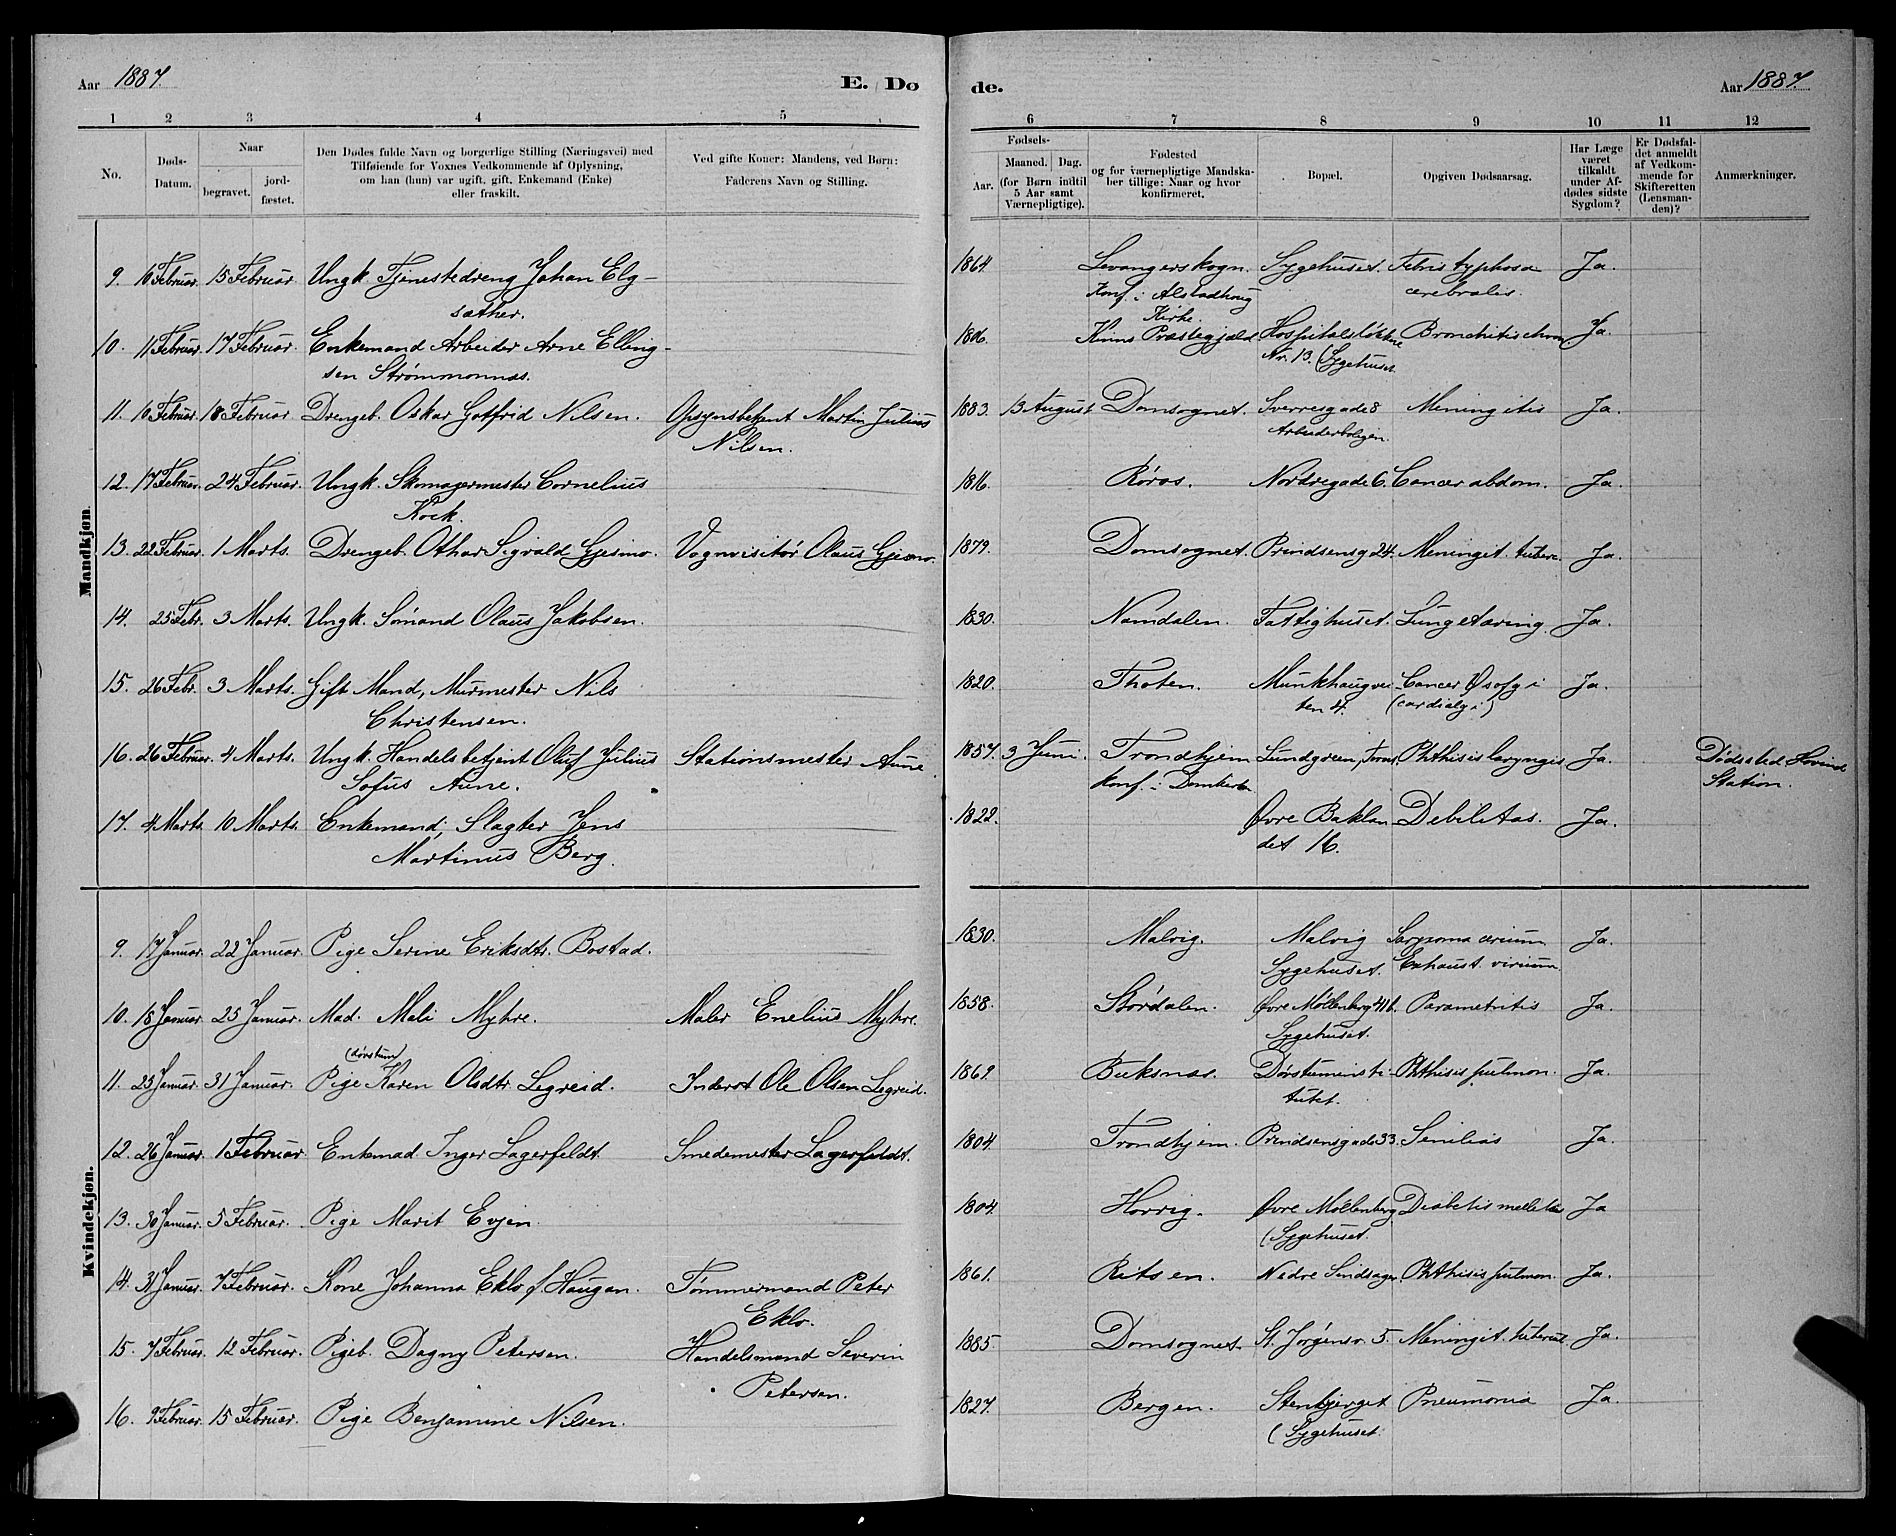 Aar 1887. E. Dø de. Aar 1887.
1 2 3 4 5 6 7 8 9 10 11 12
No.
Døds-
Datum.
Naar
begravet.
jord-
fæstet.
Den Dødes fulde Navn og borgerlige Stilling (Næringsvei) med
Tilføiende for Voxnes Vedkommende af Oplysning,
om han (hun) var ugift, gift, Enkemand (Enke)
eller fraskilt.
Ved gifte Koner: Mandens, ved Børn:
Faderens Navn og Stilling.
Fødsels-
Aar.
Maaned. Dag.
(for Børn indtil
5 Aar samt
Værnepligtige).
Fødested
og for værnepligtige Mandska-
ber tillige: Naar og hvor
konfirmeret.
Bopæl.
Opgiven Dødsaarsag.
Har Læge
været
tilkaldt
under Af-
dødes sidste
Sygdom?
Er Dødsfal-
det anmeldt
af Vedkom-
mende for
Skifteretten
(Lensman-
den)?
Anmærkninger.
Mandkjøn.
9. 10 Februar. 15 Februar. Ungk. Tjenestedreng Johan Elg- 1864. Levangerskogn. Sygehuset. Febris typhosa Ja.
sæther. Konf. i Alstadhoug cerebralis.
Kirke.
10. 11 Februar. 17 Februar. Enkemand Arbeider Arne Elling- 1806. Kinns Præstegjæld Hospitalsløkkne Bronchitis chron. Ja.
sen Strømmonnæs. Nr. 13. (Sygehuset.
11. 10 Februar. 18 Februar. Drengeb. Oskar Gotfrid Nilsen. Opsynsbetjent Martin Julius 1883. 13 August Domsognet. Sverresgade 8 Meningitis Ja.
Nilsen. Arbeiderboligen.
12. 17 Februar. 24 Februar. Ungk. Skomagermester Cornelius 1816. Røros. Nordregade 6. Cancer abdom. Ja.
Kock.
13. 22 Februar. 1 Marts. Drengeb. Othar Sigvald Gjesmo. Vognvisitør Olaus Gjesmo. 1879. Domsognet. Prindsensg 24. Meningit. tuberc. Ja.
14. 25 Febr. 3 Marts. Ungk. Sømand Olaus Jakobsen. 1830. Namdalen. Fattighuset. Lungetæring. Ja.
15. 26 Febr. 3 Marts. Gift Mand, Murmester Nils 1820. Thoten. Munkhaugvei- Cancer Øsofgi Ja.
Christensen. ten 4. (cardialgi)
16. 26 Februar. 4 Marts. Ungk. Handelsbetjent Oluf Julius Stationsmester Aune. 1857. 3 Juni. Trondhjem Lundgreen, Phthisis laryngis Ja. Dødssted Hovind
Sofus Aune. Konf. i Domkirken Station.
17. 4 Marts. 10 Marts. Enkemand, Slagter Jens 1822. Øvre Baklan- Debilitas. Ja.
Martinus Berg. det 16.
Kvindekjøn.
9. 17 Januar. 22 Januar. Pige Serine Eriksdtr. Bostad. 1830. Malvig. Malvig Ja.
Sygehuset. Exhaust. virium.
10. 18 Januar. 25 Januar. Mad. Mali Myhre. Maler Enelius Myhre. 1858. Størdalen. Øvre Møllenberg 41b. Parametritis Ja.
Sygehuset.
(døvstum)
11. 25 Januar. 31 Januar. Pige Karen Olsdtr. Legreid. Inderst Ole Olsen Legreid. 1869. Buksnæs. Døvstuminsti- Phthisis pulmon. Ja.
tutet.
12. 26 Januar. 1 Februar Enkemad. Inger Lagerfeldt. Smedemester Lagerfeldt. 1804. Trondhjem. Prindsensgade 33. Senilias Ja.
13. 30 Januar. 5 Februar. Pige Marit Evjen. 1804. Horrig. Øvre Møllenberg Diabetis mellitus Ja
(Sygehuset.
14. 31 Januar. 7 Februar. Kone Johanna Eklo f. Haugan. Tømmermand Peter 1861. Ritsen. Nedre Singsager. Phthisis pulmon. Ja.
Eklo.
15. 7 Februar. 12 Februar. Pigeb. Dagny Petersen. Handelsmand Severin 1885. Domsognet. St. Jørgensv. 5. Meningit. tubercul. Ja.
Petersen.
16. 9 Februar. 15 Februar. Pige Benjamine Nilsen. 1827. Bergen. Stenbjerget Pneumonia Ja.
(Sygehuset.